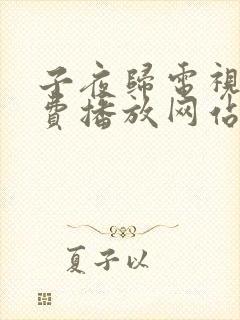 子夜歸電視
費播放网佔
夏子以